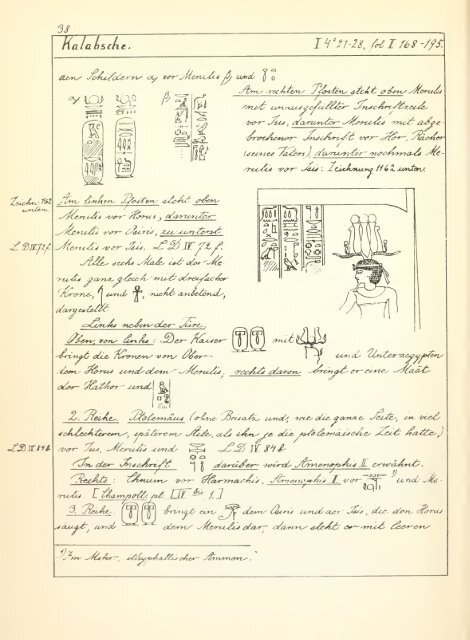 38
Kalabsche. I 4° 21-28, fol I 168-195.
den Schildern α) vor Merulis β) und
α) β)
Am rechten Pfosten steht oben Merulis
mit unausgefüllter Inschriftzeile
vor Isis, darunter Merulis mit abge-
brochener Inschrift vor Hor, Rächer
(seines Vaters), darunter nochmals Me-
rulis vor Isis: Zeichnung 1162 unten.
Zeichn. 1162
unten.
Am linken Pfosten steht oben
Merulis vor Horus, darunter
Merulis vor Osiris, zu unterst
L.D. IV 72 f. Merulis vor Isis. L.D. IV 72 f.
Alle sechs Male ist der Me-
rulis ganz gleich mit dreifacher
Krone, und , nicht anbetend,
dargestellt.
Links neben der Türe.
Oben, von links: Der Kaiser mit
bringt die Kronen von Ober- und Unteraegypten
dem Horus und dem Merulis, rechts davon bringt er eine Maat
der Hathor und
2. Reihe. Ptolemäus (ohne Beisatz und, wie die ganze Seite, in viel
schlechterem, späterem Stile, als ihn je die ptolemäische Zeit hatte)
L.D. IV 84 b. vor Isis, Merulis und L.D. IV 84 b.
In der Inschrift darüber wird Amenophis II erwähnt.
Rechts: Chnum vor Harmachis, Amenophis II vor ¹) und Me-
rulis [Champoll. pl. LIV bis 1.]
3. Reihe. bringt ein dem Osiris und der Isis, die den Horus
säugt, und dem Merulis dar, dann steht er mit leeren
¹) Im Mskr.: ithyphallischer Ammon.